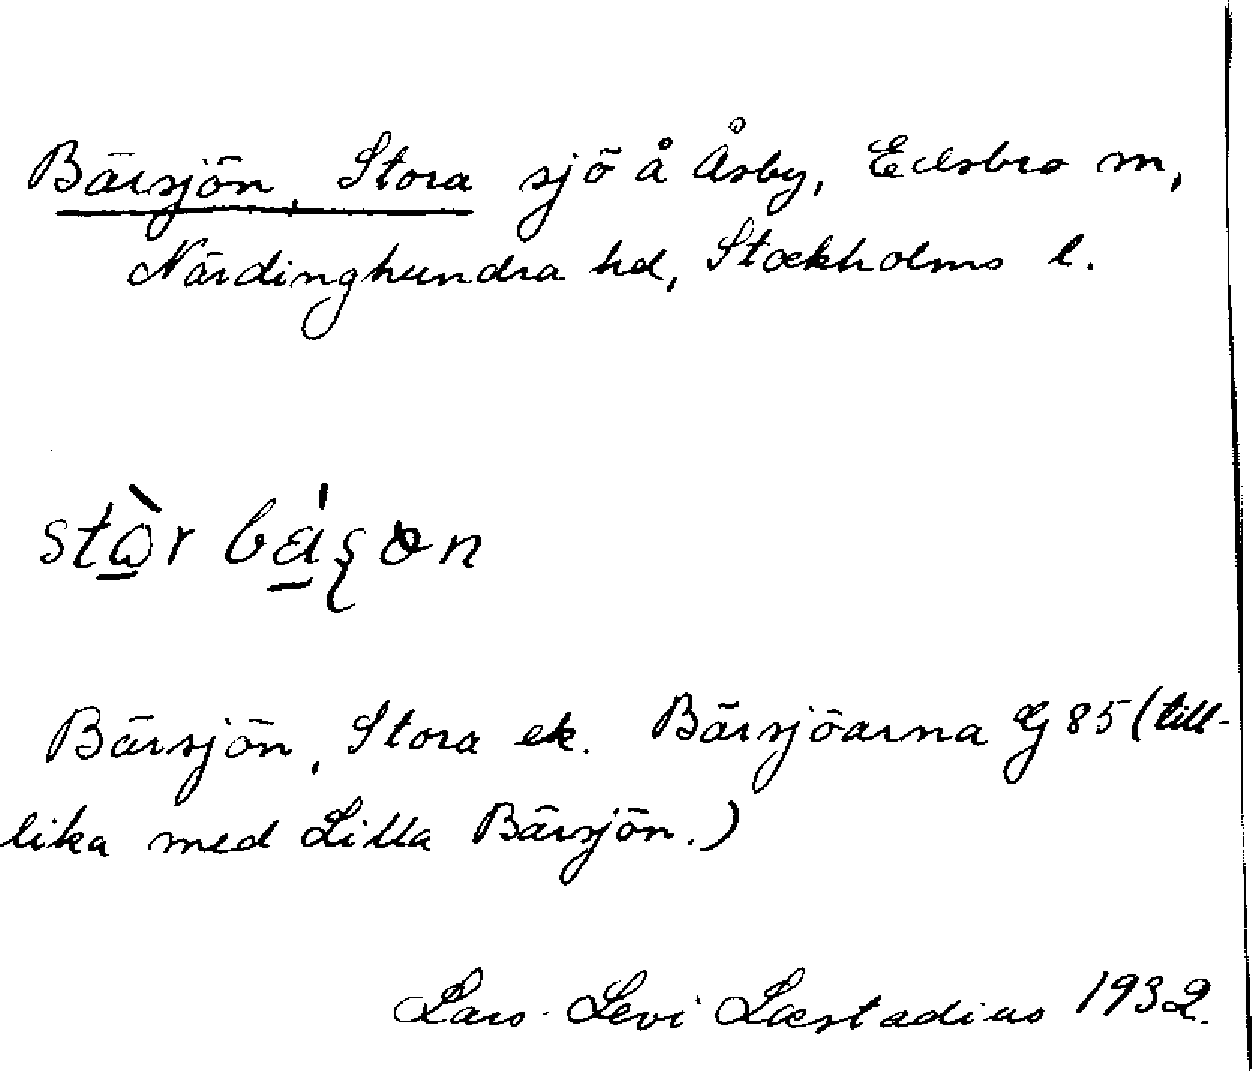 Bärsjön, Stora sjö å Åsby, Edsbro sn,
Närdinghundra hd, Stockholms l.
Bärsjön, Stora ek. Bärsjöarna 85 (till-
lika med Lilla Bärsjön.)
Lars Levi Læstadius 1932.